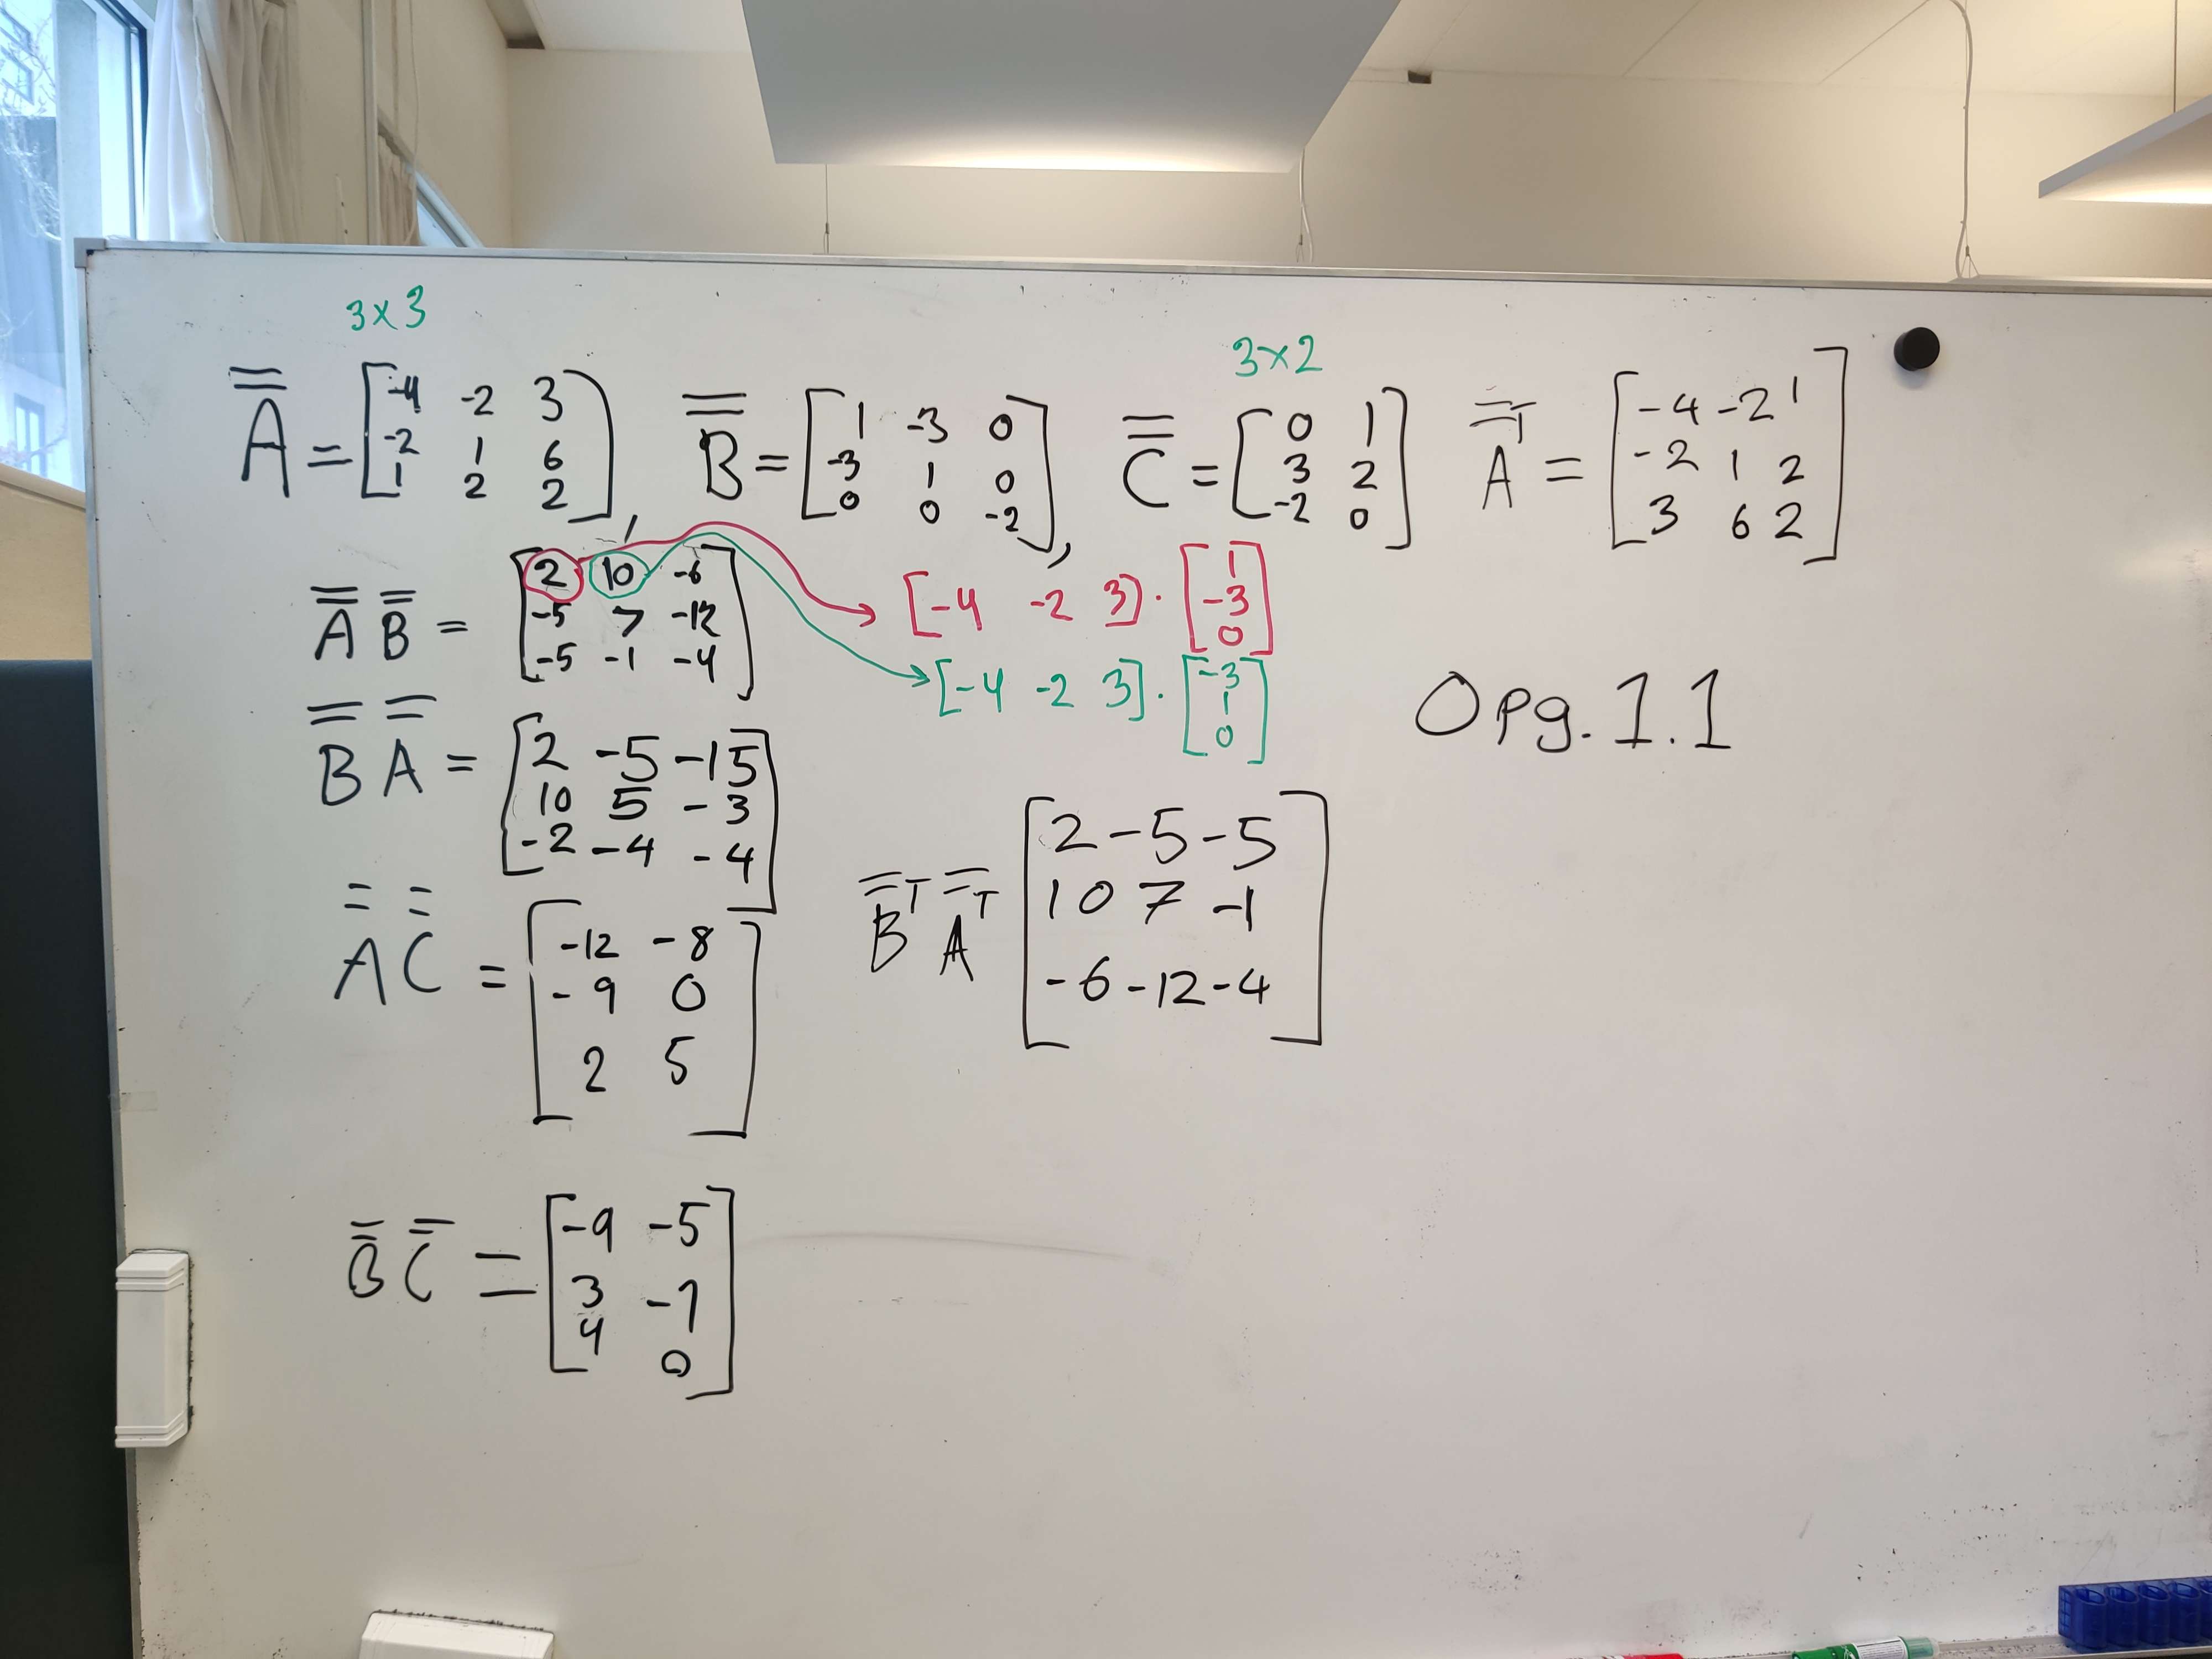 3×3
3×2
A̿ = [-4 -2 3
-2 1 6
1 2 2],
B̿ = [1 -3 0
-3 1 0
0 0 -2],
C̿ = [0 1
3 2
-2 0]
A̿ᵀ = [-4 -2 1
-2 1 2
3 6 2]
A̿ B̿ = [2 10 -6
-5 7 -12
-5 -1 -4]
[-4 -2 3] · [1
-3
0]
[-4 -2 3] · [-3
1
0]
Opg. 1.1
B̿ A̿ = [2 -5 -15
10 5 -3
-2 -4 -4]
B̿ᵀ A̿ᵀ [2 -5 -5
10 7 -1
-6 -12 -4]
A̿ C̿ = [-12 -8
-9 0
2 5]
B̿ C̿ = [-9 -5
3 -1
4 0]